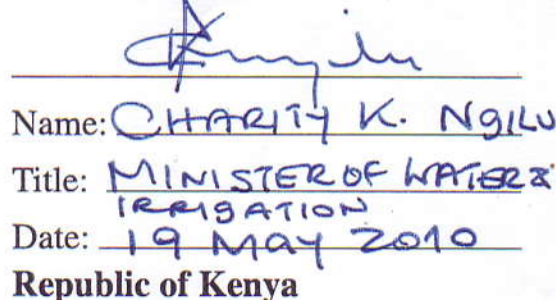 Name: CHARITY K. NGILU
Title: MINISTER OF WATER &
IRRIGATION
Date: 19 MAY 2010
Republic of Kenya